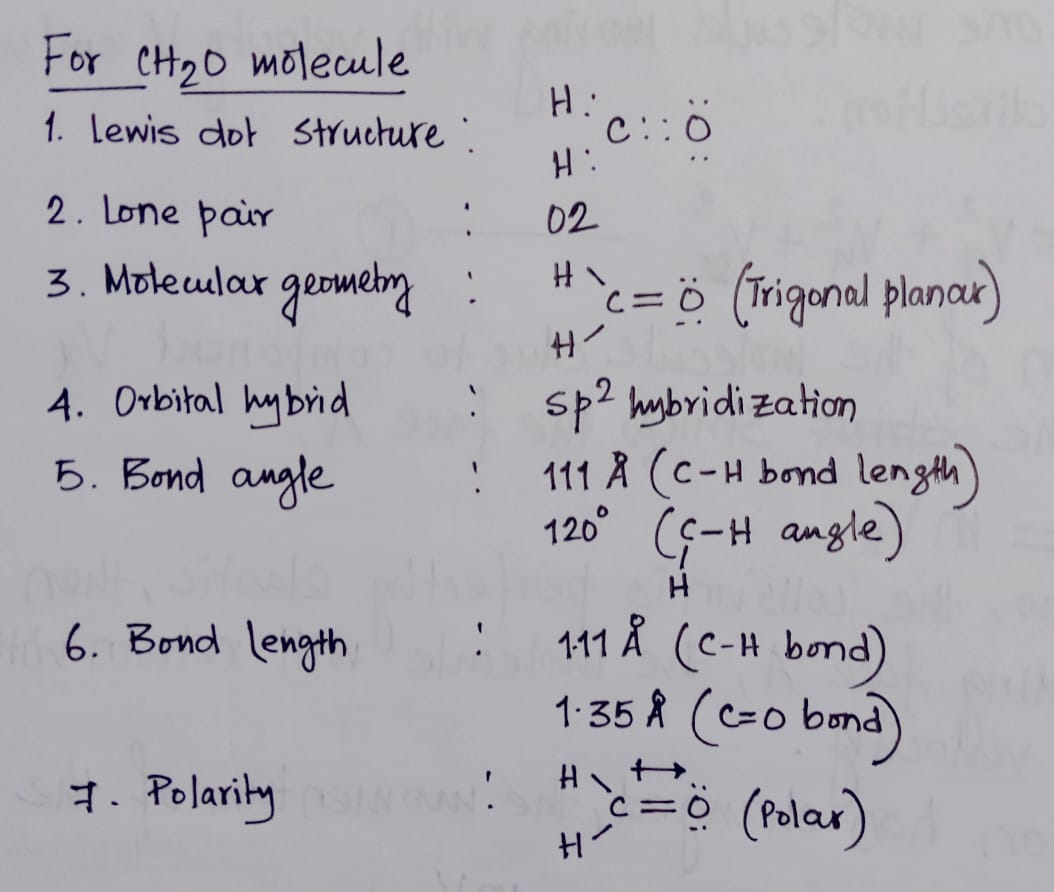 For CH2O molecule
1. Lewis dot structure : H: C::Ö
H:
2. Lone pair : 02
3. Molecular geometry : H\C=Ö (Trigonal planar)
H/
4. Orbital hybrid : sp² hybridization
5. Bond angle : 111 Å (C-H bond length)
120° (C-H angle)
H
6. Bond length : 1.11 Å (C-H bond)
1.35 Å (C=O bond)
7. Polarity : H\C=Ö (Polar)
H/